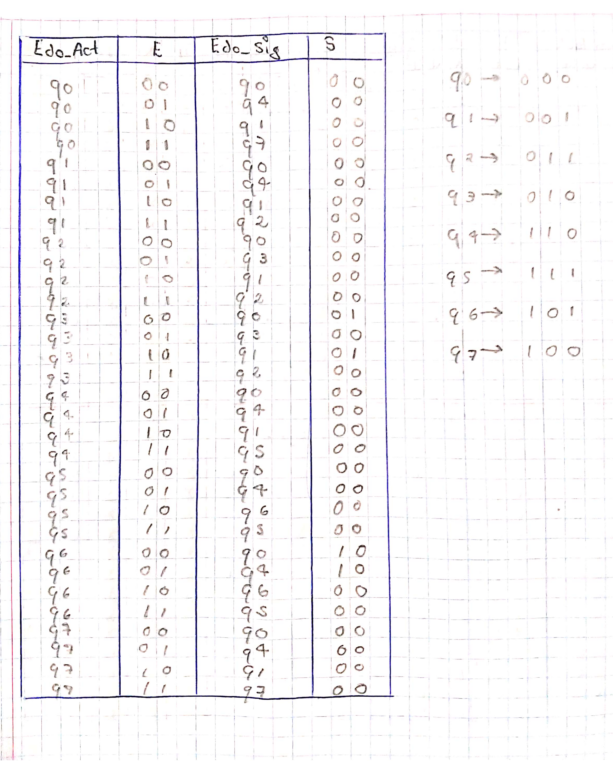 Edo_Act E Edo_Sig S
q0 00 q0 00
q0 01 q4 00
q0 10 q1 00
q0 11 q7 00
q1 00 q0 00
q1 01 q4 00
q1 10 q1 00
q1 11 q2 00
q2 00 q0 00
q2 01 q3 00
q2 10 q1 00
q2 11 q2 00
q3 00 q0 01
q3 01 q3 00
q3 10 q1 01
q3 11 q2 00
q4 00 q0 00
q4 01 q4 00
q4 10 q1 00
q4 11 q5 00
q5 00 q0 00
q5 01 q4 00
q5 10 q6 00
q5 11 q5 00
q6 00 q0 10
q6 01 q4 10
q6 10 q6 00
q6 11 q5 00
q7 00 q0 00
q7 01 q4 00
q7 10 q1 00
q7 11 q7 00
q0 → 000
q1 → 001
q2 → 011
q3 → 010
q4 → 110
q5 → 111
q6 → 101
q7 → 100